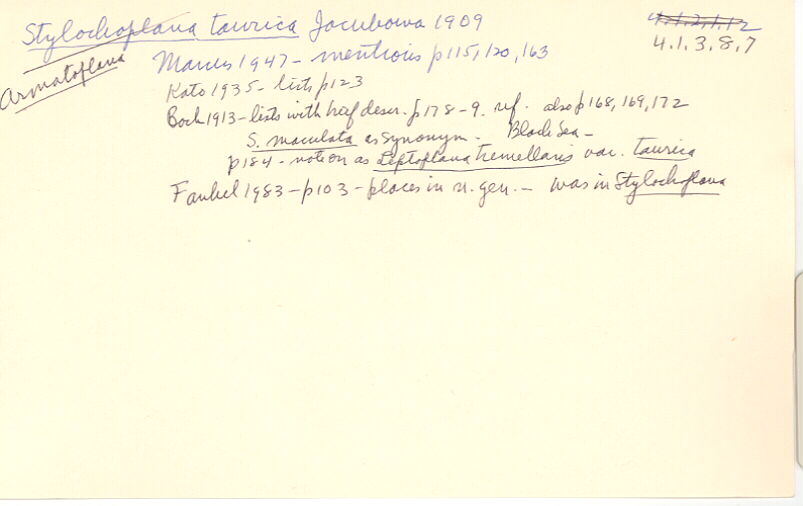 Stylochoplana taurica Jacubowa 1909
4.1.2.1.12
4.1.3.8.7
Armatoplana
Marcus 1947 - mentions p115, 120, 163
Kato 1935 - lists p123
Bock 1913 - lists with brief descr. p178-9. ref. also p168, 169, 172
S. maculata as synonym. Black Sea -
p184 - note on as Leptoplana tremellaris var. taurica
Faubel 1983 - p103 - places in n. gen. - was in Stylochoplana